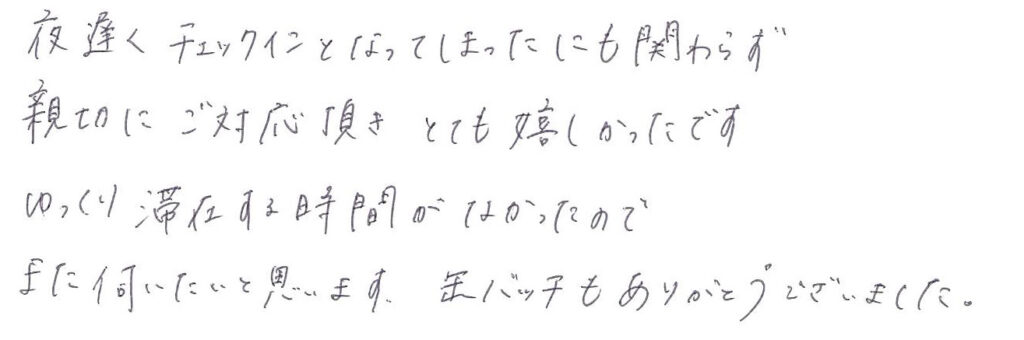 夜遅くチェックインとなってしまったにも関わらず
親切にご対応頂きとても嬉しかったです
ゆっくり滞在する時間がなかったので
また伺いたいと思います。缶バッチもありがとうございました。